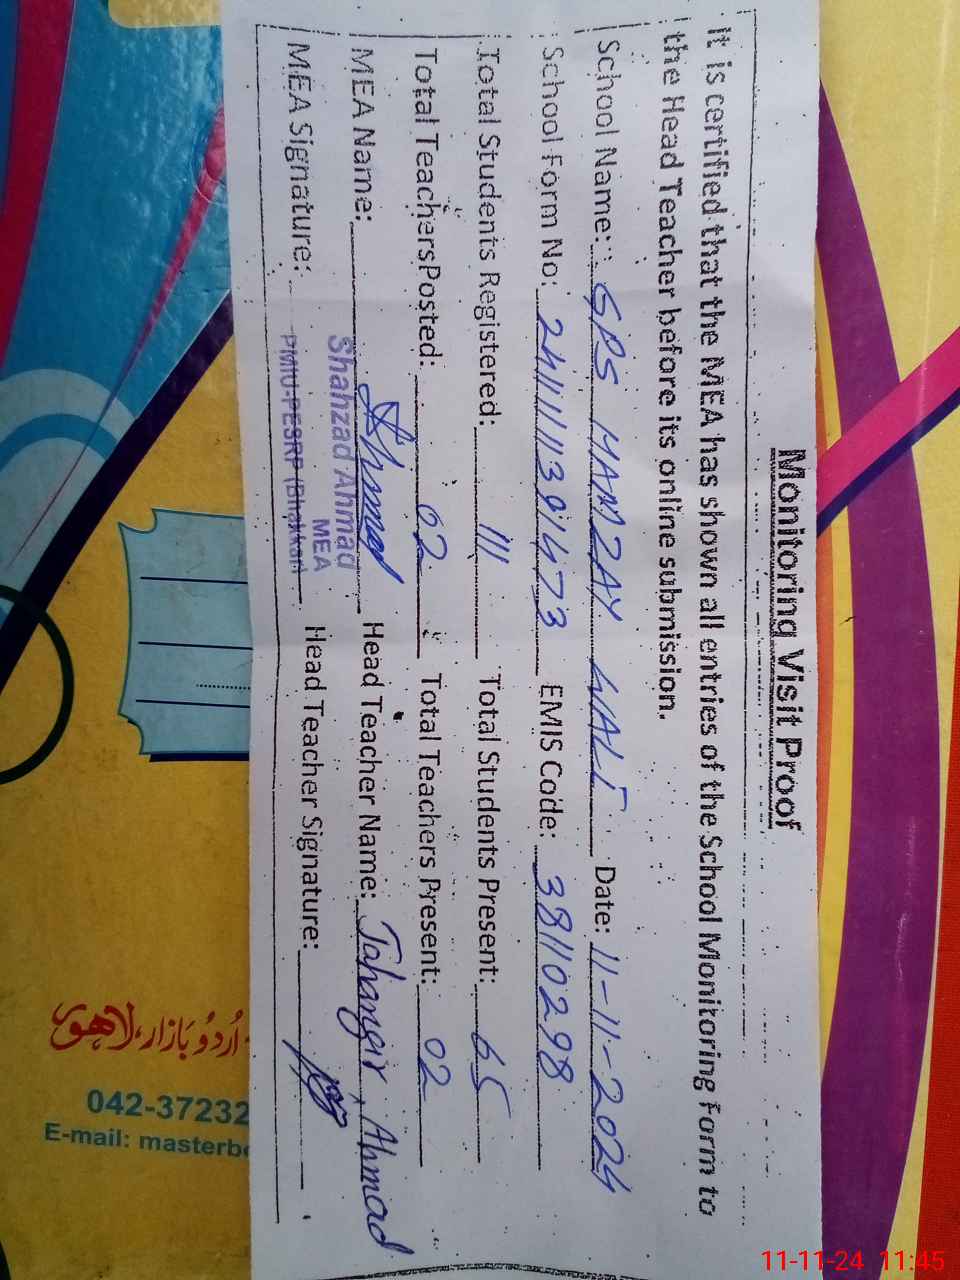 Monitoring Visit Proof
It is certified that the MEA has shown all entries of the School Monitoring Form to
the Head Teacher before its online submission.
School Name: GPS HAMZAY WALI Date: 11-11-2024
School Form No: 241111130/473 EMIS Code: 38110298
Total Students Registered: 111 Total Students Present: 65
Total Teachers Posted: 02 Total Teachers Present: 02
MEA Name: Ahmad Head Teacher Name: Jahangir Ahmad
Shahzad Ahmad
MEA
PMIU-PESRP (Bhakkar)
MEA Signature: Head Teacher Signature:
اُردُو بازار، لاهور
042-37232
E-mail: masterb
11-11-24 11:45